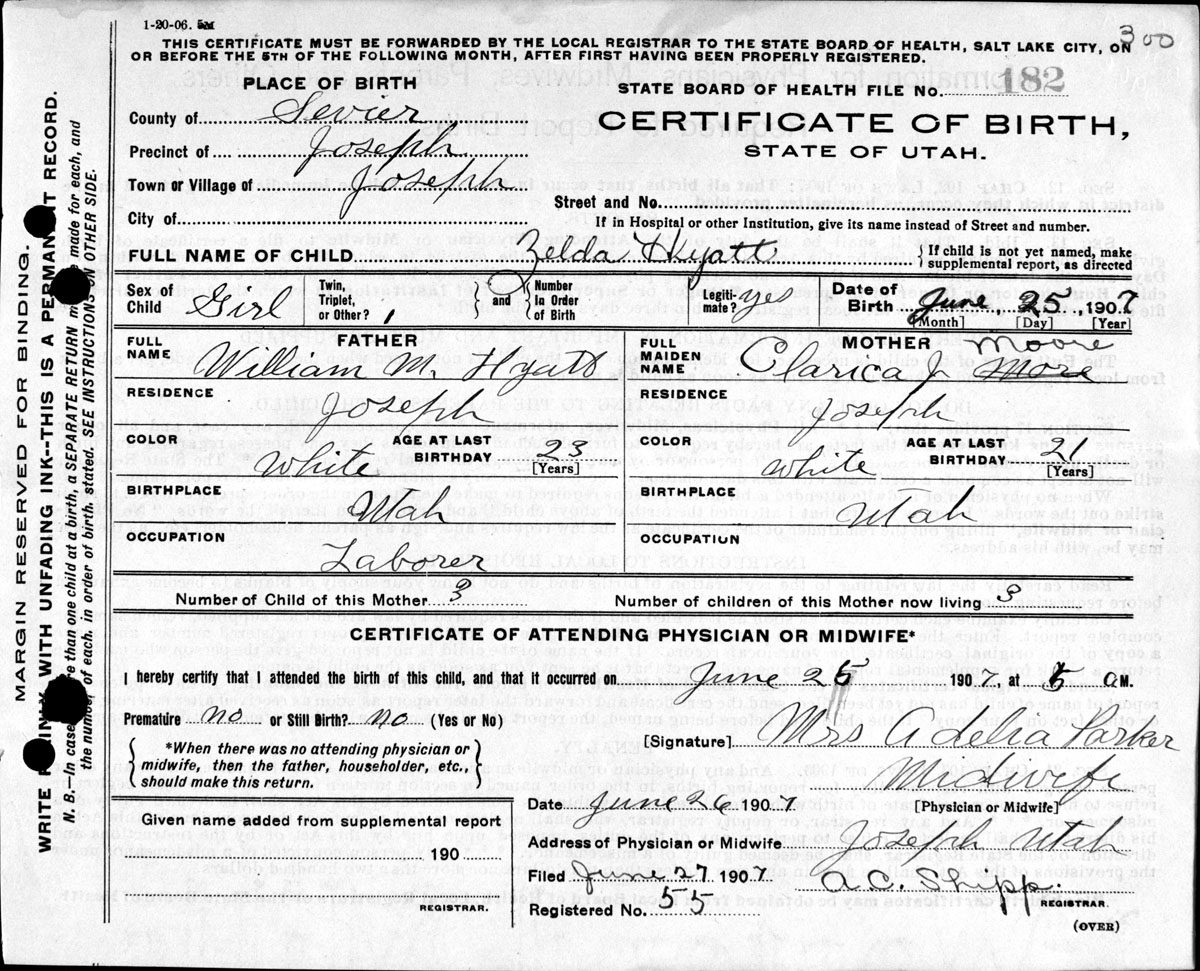 1-20-06. 5M
300
THIS CERTIFICATE MUST BE FORWARDED BY THE LOCAL REGISTRAR TO THE STATE BOARD OF HEALTH, SALT LAKE CITY, ON
OR BEFORE THE 5TH OF THE FOLLOWING MONTH, AFTER FIRST HAVING BEEN PROPERLY REGISTERED.
PLACE OF BIRTH
STATE BOARD OF HEALTH FILE No. 182
County of Sevier
CERTIFICATE OF BIRTH,
Precinct of Joseph
STATE OF UTAH.
Town or Village of Joseph
Street and No.
City of
If in Hospital or other Institution, give its name instead of Street and number.
FULL NAME OF CHILD Zelda Hyatt { If child is not yet named, make supplemental report, as directed
Sex of Child Girl Twin, Triplet, or Other? 1 and Number In Order of Birth Legiti- mate? yes Date of Birth June 25, 1907
[Month] [Day] [Year]
FATHER
MOTHER
FULL NAME William M. Hyatt
FULL MAIDEN NAME Clarica J. More Moore
RESIDENCE Joseph
RESIDENCE Joseph
COLOR White AGE AT LAST BIRTHDAY 23 [Years]
COLOR White AGE AT LAST BIRTHDAY 21 [Years]
BIRTHPLACE Utah
BIRTHPLACE Utah
OCCUPATION Laborer
OCCUPATION
Number of Child of this Mother 3 Number of children of this Mother now living 3
CERTIFICATE OF ATTENDING PHYSICIAN OR MIDWIFE*
I hereby certify that I attended the birth of this child, and that it occurred on June 25 1907, at 5 a M.
Premature no or Still Birth? no (Yes or No)
{ *When there was no attending physician or midwife, then the father, householder, etc., should make this return. }
[Signature] Mrs Adelia Parker
Midwife
[Physician or Midwife]
Given name added from supplemental report
190
REGISTRAR.
Date June 26 1907
Address of Physician or Midwife Joseph Utah
Filed June 27 1907 A.C. Shipp.
REGISTRAR.
Registered No. 55
(OVER)
MARGIN RESERVED FOR BINDING.
WRITE WITH UNFADING INK--THIS IS A RECORD.
N. B.—In case than one child at a birth, a SEPARATE RETURN made for each, and
the number of each, in order of birth, stated. SEE INSTRUCTIONS ON OTHER SIDE.